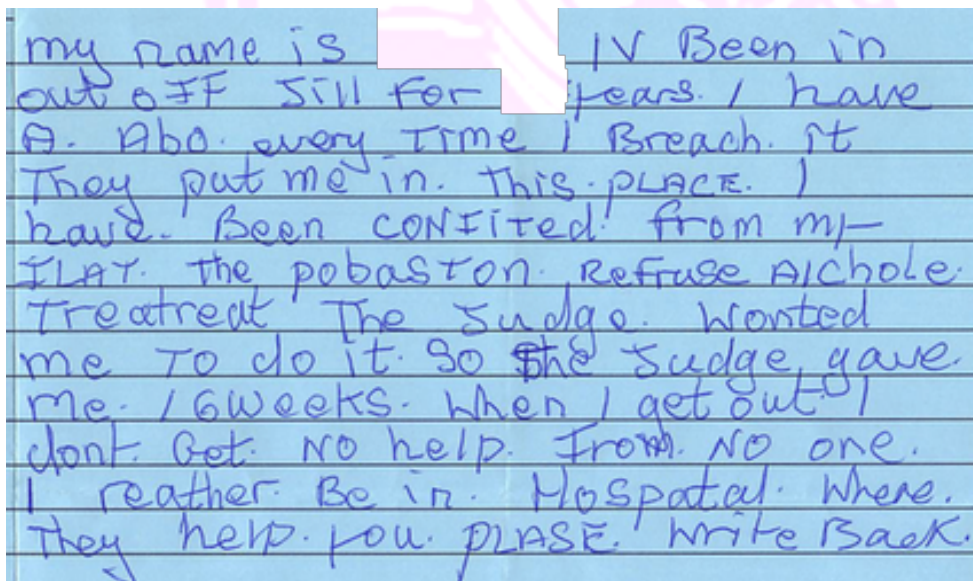 my name is IV Been in
out off Jill For years. I have
A. Abo. every Time I Breach. it
They put me in. This. PLACE. I
have. Been CONFited. from my
FLAT. The pobaston. Refruse Alchole.
Treatreat The Judge. Wonted
me To do it. So the Judge gave.
me. 16 weeks. When I get out I
dont. Get. No help. From. No one.
I reather. Be in. Hospatal. Where.
They help. you. PLASE. Write Back.